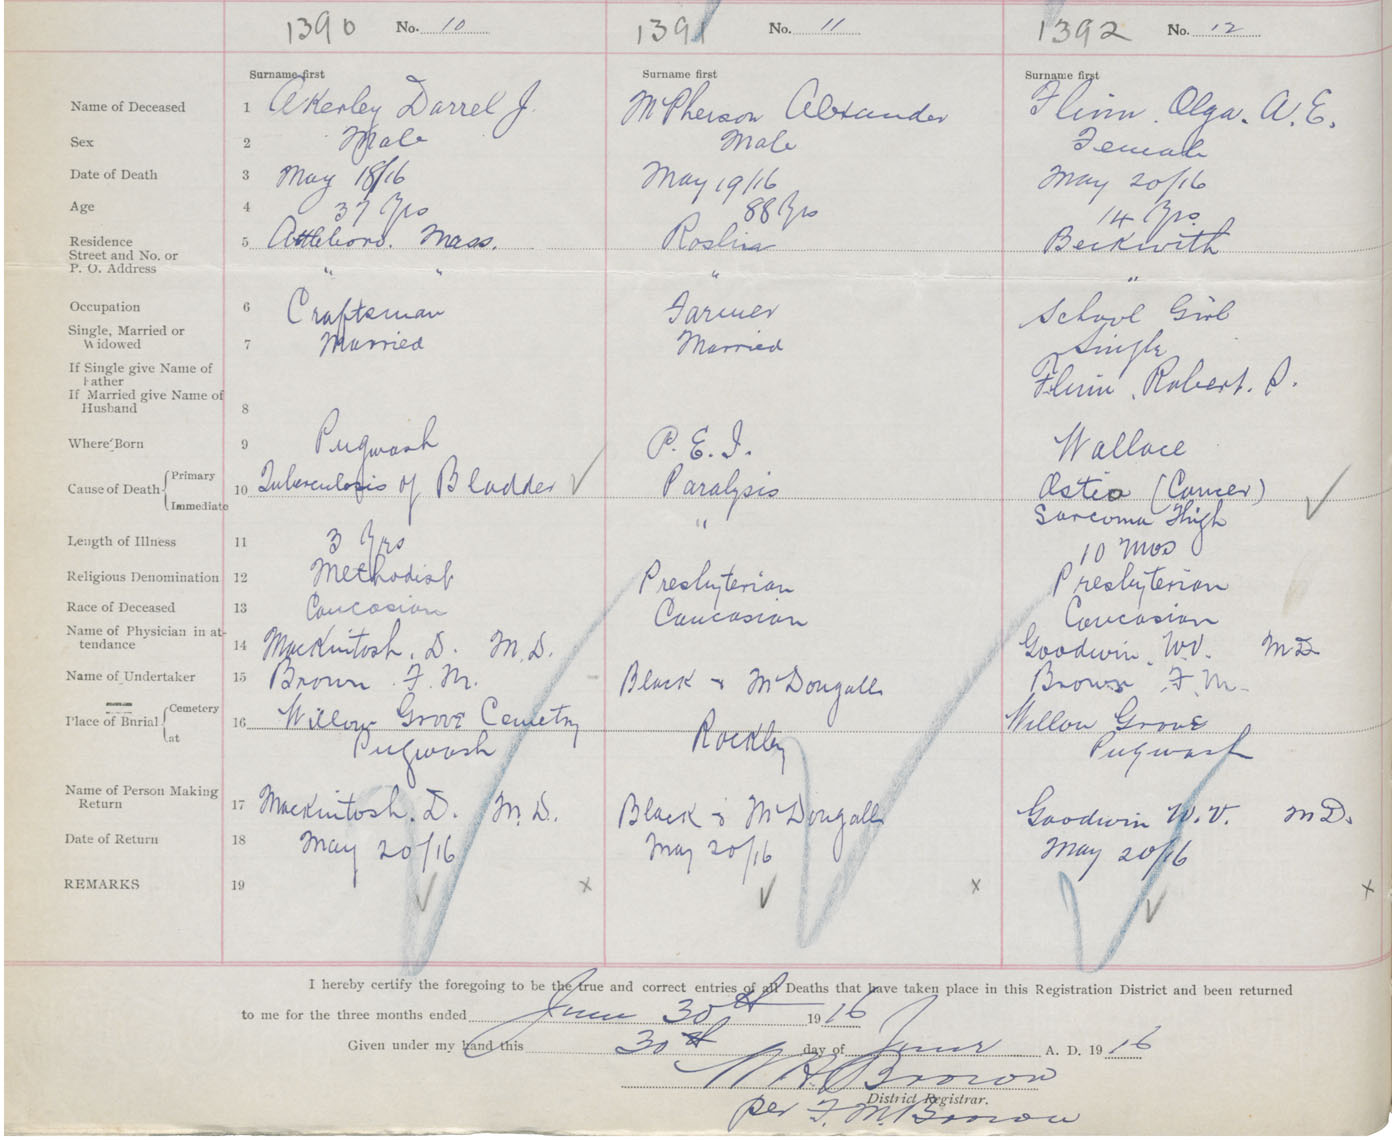 1390 No. 10 1391 No. 11 1392 No. 12
Surname first Surname first Surname first
Name of Deceased 1 Akerley Darrel J. McPherson Alexander Flinn. Olga. A. E.
Sex 2 Male Male Female
Date of Death 3 May 18/16 May 19/16 May 20/16
Age 4 37 Yrs 88 Yrs 14 Yrs.
Residence 5 Attleboro. Mass. Roslin Beckwith
Street and No. or
P. O. Address " " " "
Occupation 6 Craftsman Farmer School Girl
Single, Married or
Widowed 7 Married Married Single
If Single give Name of
Father Flinn, Robert. P.
If Married give Name of
Husband 8
Where Born 9 Pugwash P. E. I. Wallace
Cause of Death Primary 10 Tuberculosis of Bladder ✓ Paralysis Osteo (Cancer) ✓
Immediate " Sarcoma Thigh
Length of Illness 11 3 Yrs 10 Mos
Religious Denomination 12 Methodist Presbyterian Presbyterian
Race of Deceased 13 Caucasian Caucasian Caucasian
Name of Physician in at-
tendance 14 Mackintosh. D. M.D. Goodwin. W.V. M D
Name of Undertaker 15 Brown. F. M. Black & McDougall Brown. F. M.
Place of Burial Cemetery 16 Willow Grove Cemetry Rockley Willow Grove
at Pugwash Pugwash
Name of Person Making
Return 17 Mackintosh. D. M.D. Black & McDougall Goodwin W.V. M D.
Date of Return 18 May 20/16 May 20/16 May 20/16
REMARKS 19 ✓ x ✓ x ✓ x
I hereby certify the foregoing to be the true and correct entries of all Deaths that have taken place in this Registration District and been returned
to me for the three months ended June 30th 1916
Given under my hand this 30th day of June A. D. 1916
Brown
District Registrar.
per F. M. Brown